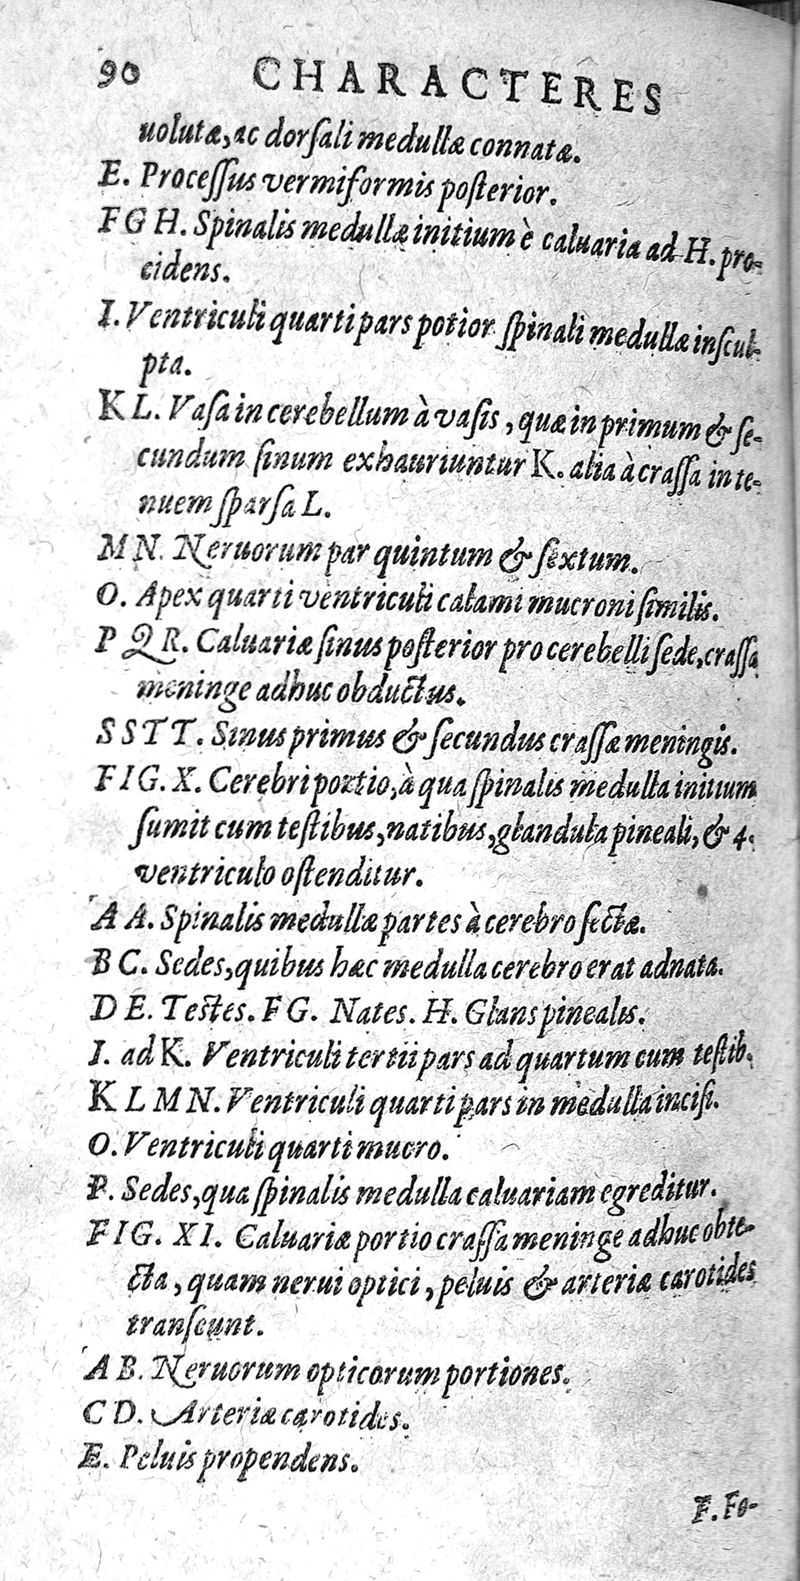 90 CHARACTERES
uolutæ, ac dorſali medullæ connatæ.
E. Proceſſus vermiformis poſterior.
F G H. Spinalis medullæ initium è caluaria ad H. pro-
cidens.
I. Ventriculi quarti pars potior ſpinali medullæ inſcul-
pta.
K L. Vaſa in cerebellum à vaſis, quæ in primum & ſe-
cundum ſinum exhauriuntur K. alia à craſſa in te-
nuem ſparſa L.
M N. Neruorum par quintum & ſextum.
O. Apex quarti ventriculi calami mucroni ſimilis.
P Q R. Caluariæ ſinus poſterior pro cerebelli ſede, craſſa
meninge adhuc obductus.
S S T T. Sinus primus & ſecundus craſſæ meningis.
F I G. X. Cerebri portio, à qua ſpinalis medulla initium
ſumit cum teſtibus, natibus, glandula pineali, & 4.
ventriculo oſtenditur.
A A. Spinalis medullæ partes à cerebro ſectæ.
B C. Sedes, quibus hæc medulla cerebro erat adnata.
D E. Testes. F G. Nates. H. Glans pinealis.
I. ad K. Ventriculi tertii pars ad quartum cum teſtib.
K L M N. Ventriculi quarti pars in medulla inciſi.
O. Ventriculi quarti mucro.
P. Sedes, qua ſpinalis medulla caluariam egreditur.
F I G. X I. Caluariæ portio craſſa meninge adhuc obte-
cta, quam nerui optici, peluis & arteriæ carotides
tranſeunt.
A B. Neruorum opticorum portiones.
C D. Arteriæ carotides.
E. Peluis propendens.
F. Fo-